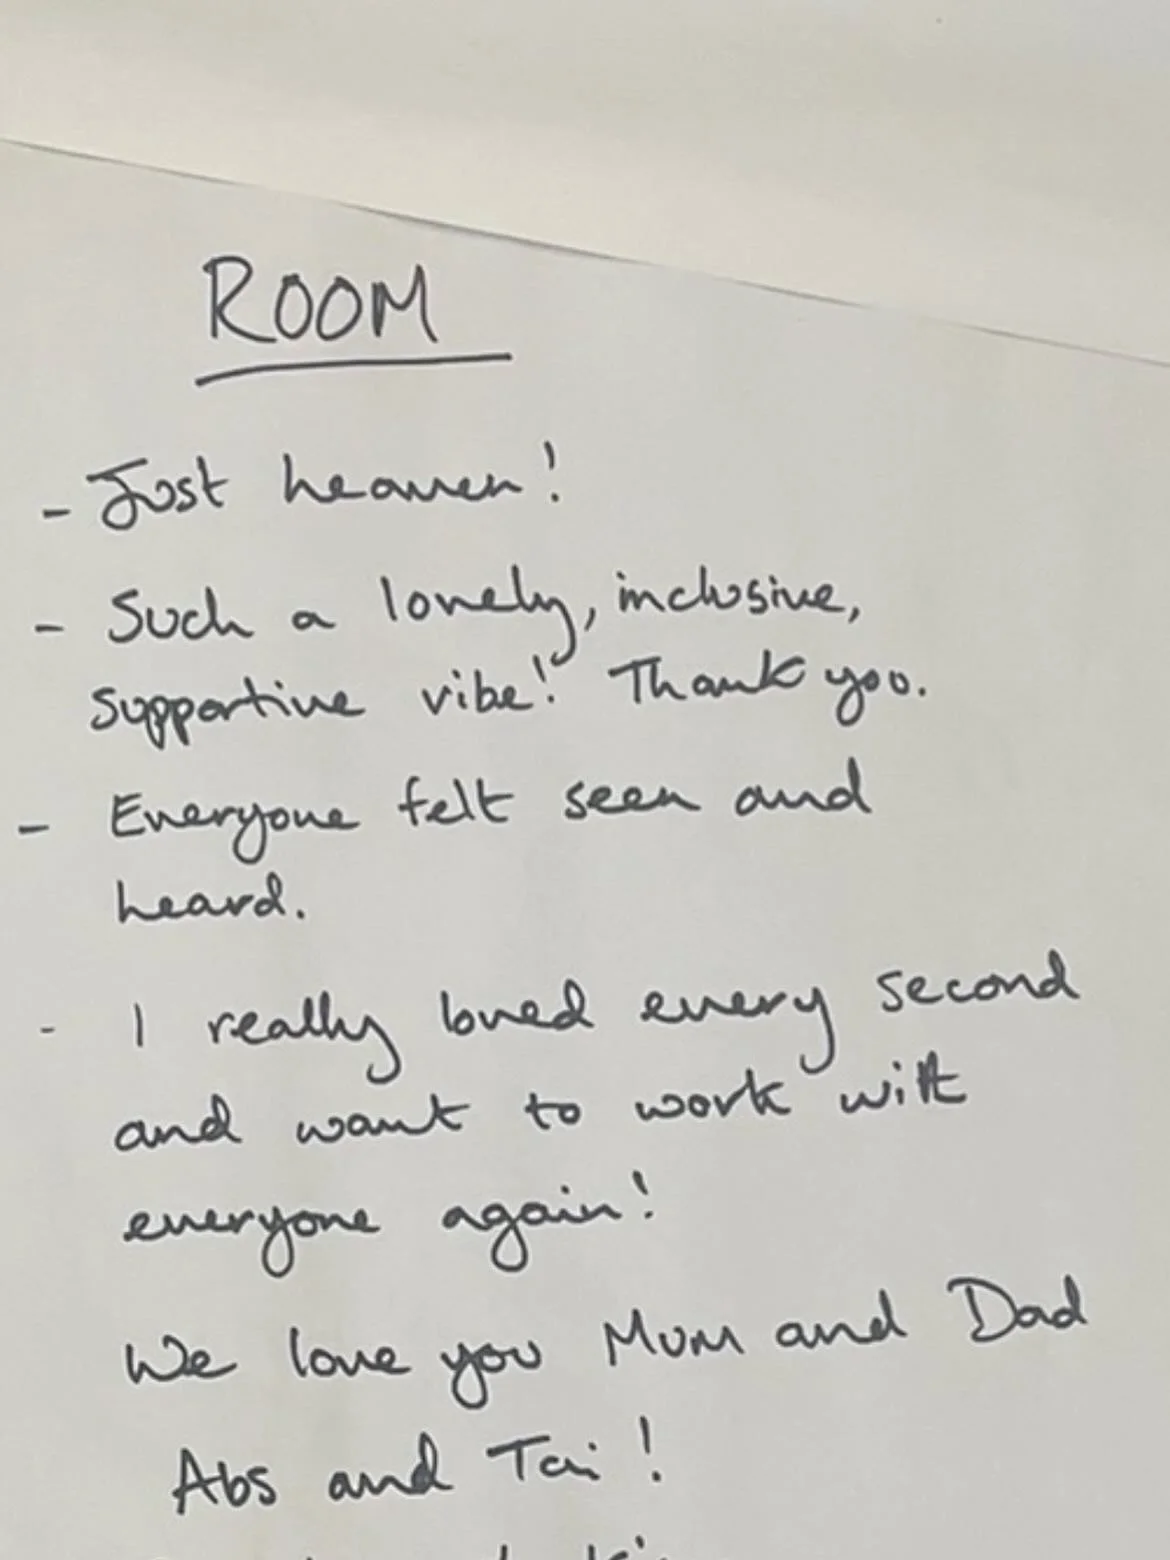 ROOM
- Just heaven!
- Such a lovely, inclusive,
supportive vibe! Thank you.
- Everyone felt seen and
heard.
- I really loved every second
and want to work with
everyone again!
We love you Mum and Dad
Abs and Tai!